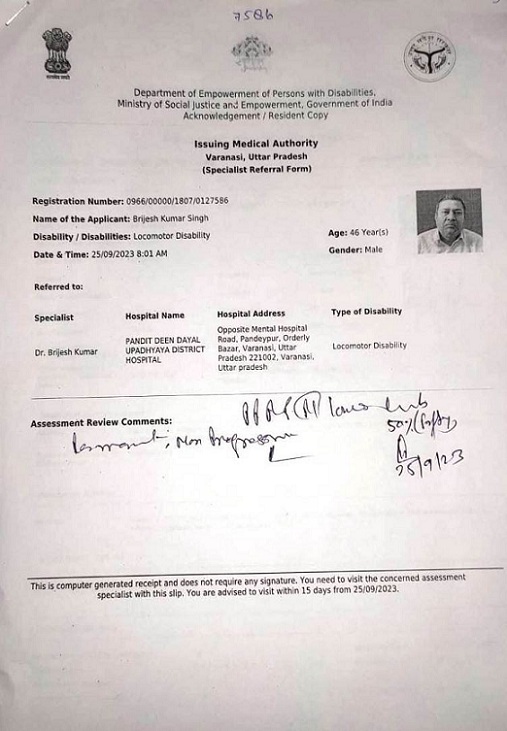 7586
Department of Empowerment of Persons with Disabilities,
Ministry of Social Justice and Empowerment, Government of India
Acknowledgement / Resident Copy
Issuing Medical Authority
Varanasi, Uttar Pradesh
(Specialist Referral Form)
Registration Number: 0966/00000/1807/0127586
Name of the Applicant: Brijesh Kumar Singh
Disability / Disabilities: Locomotor Disability
Age: 46 Year(s)
Gender: Male
Date & Time: 25/09/2023 8:01 AM
Referred to:
Specialist Hospital Name Hospital Address Type of Disability
Dr. Brijesh Kumar
PANDIT DEEN DAYAL
UPADHYAYA DISTRICT
HOSPITAL
Opposite Mental Hospital
Road, Pandeypur, Orderly
Bazar, Varanasi, Uttar
Pradesh 221002, Varanasi,
Uttar pradesh
Locomotor Disability
Assessment Review Comments:
lower limb
50% (fifty)
Permanent, Non Progressive
25/9/23
This is computer generated receipt and does not require any signature. You need to visit the concerned assessment
specialist with this slip. You are advised to visit within 15 days from 25/09/2023.